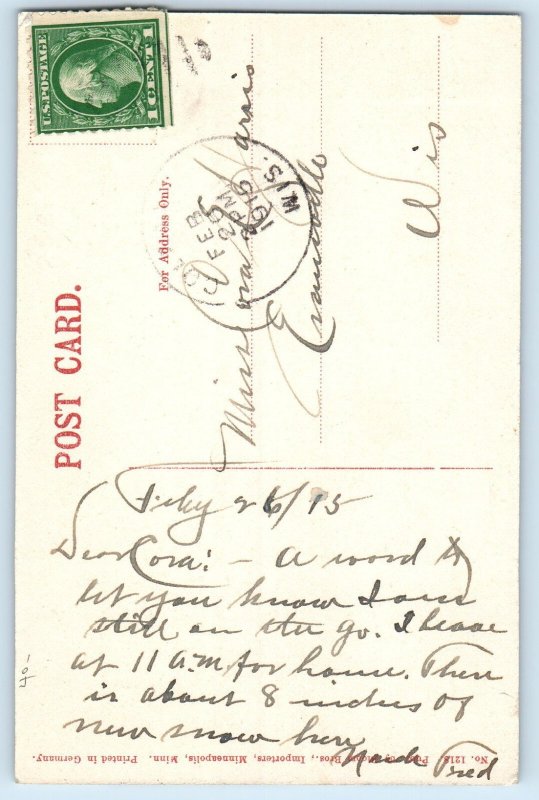 U.S. POSTAGE
1 CENT 1
FEB
2 PM
1915
WIS.
POST CARD.
For Address Only.
Miss Cora Harris
Evansville
Wis
Feby 26/15
Dear Cora: - A word to
let you know I am
still on the go. I leave
at 11 a.m for home. There
is about 8 inches of
new snow here
Uncle Fred
No. 1218. Bros., Importers, Minneapolis, Minn. Printed in Germany.
40-